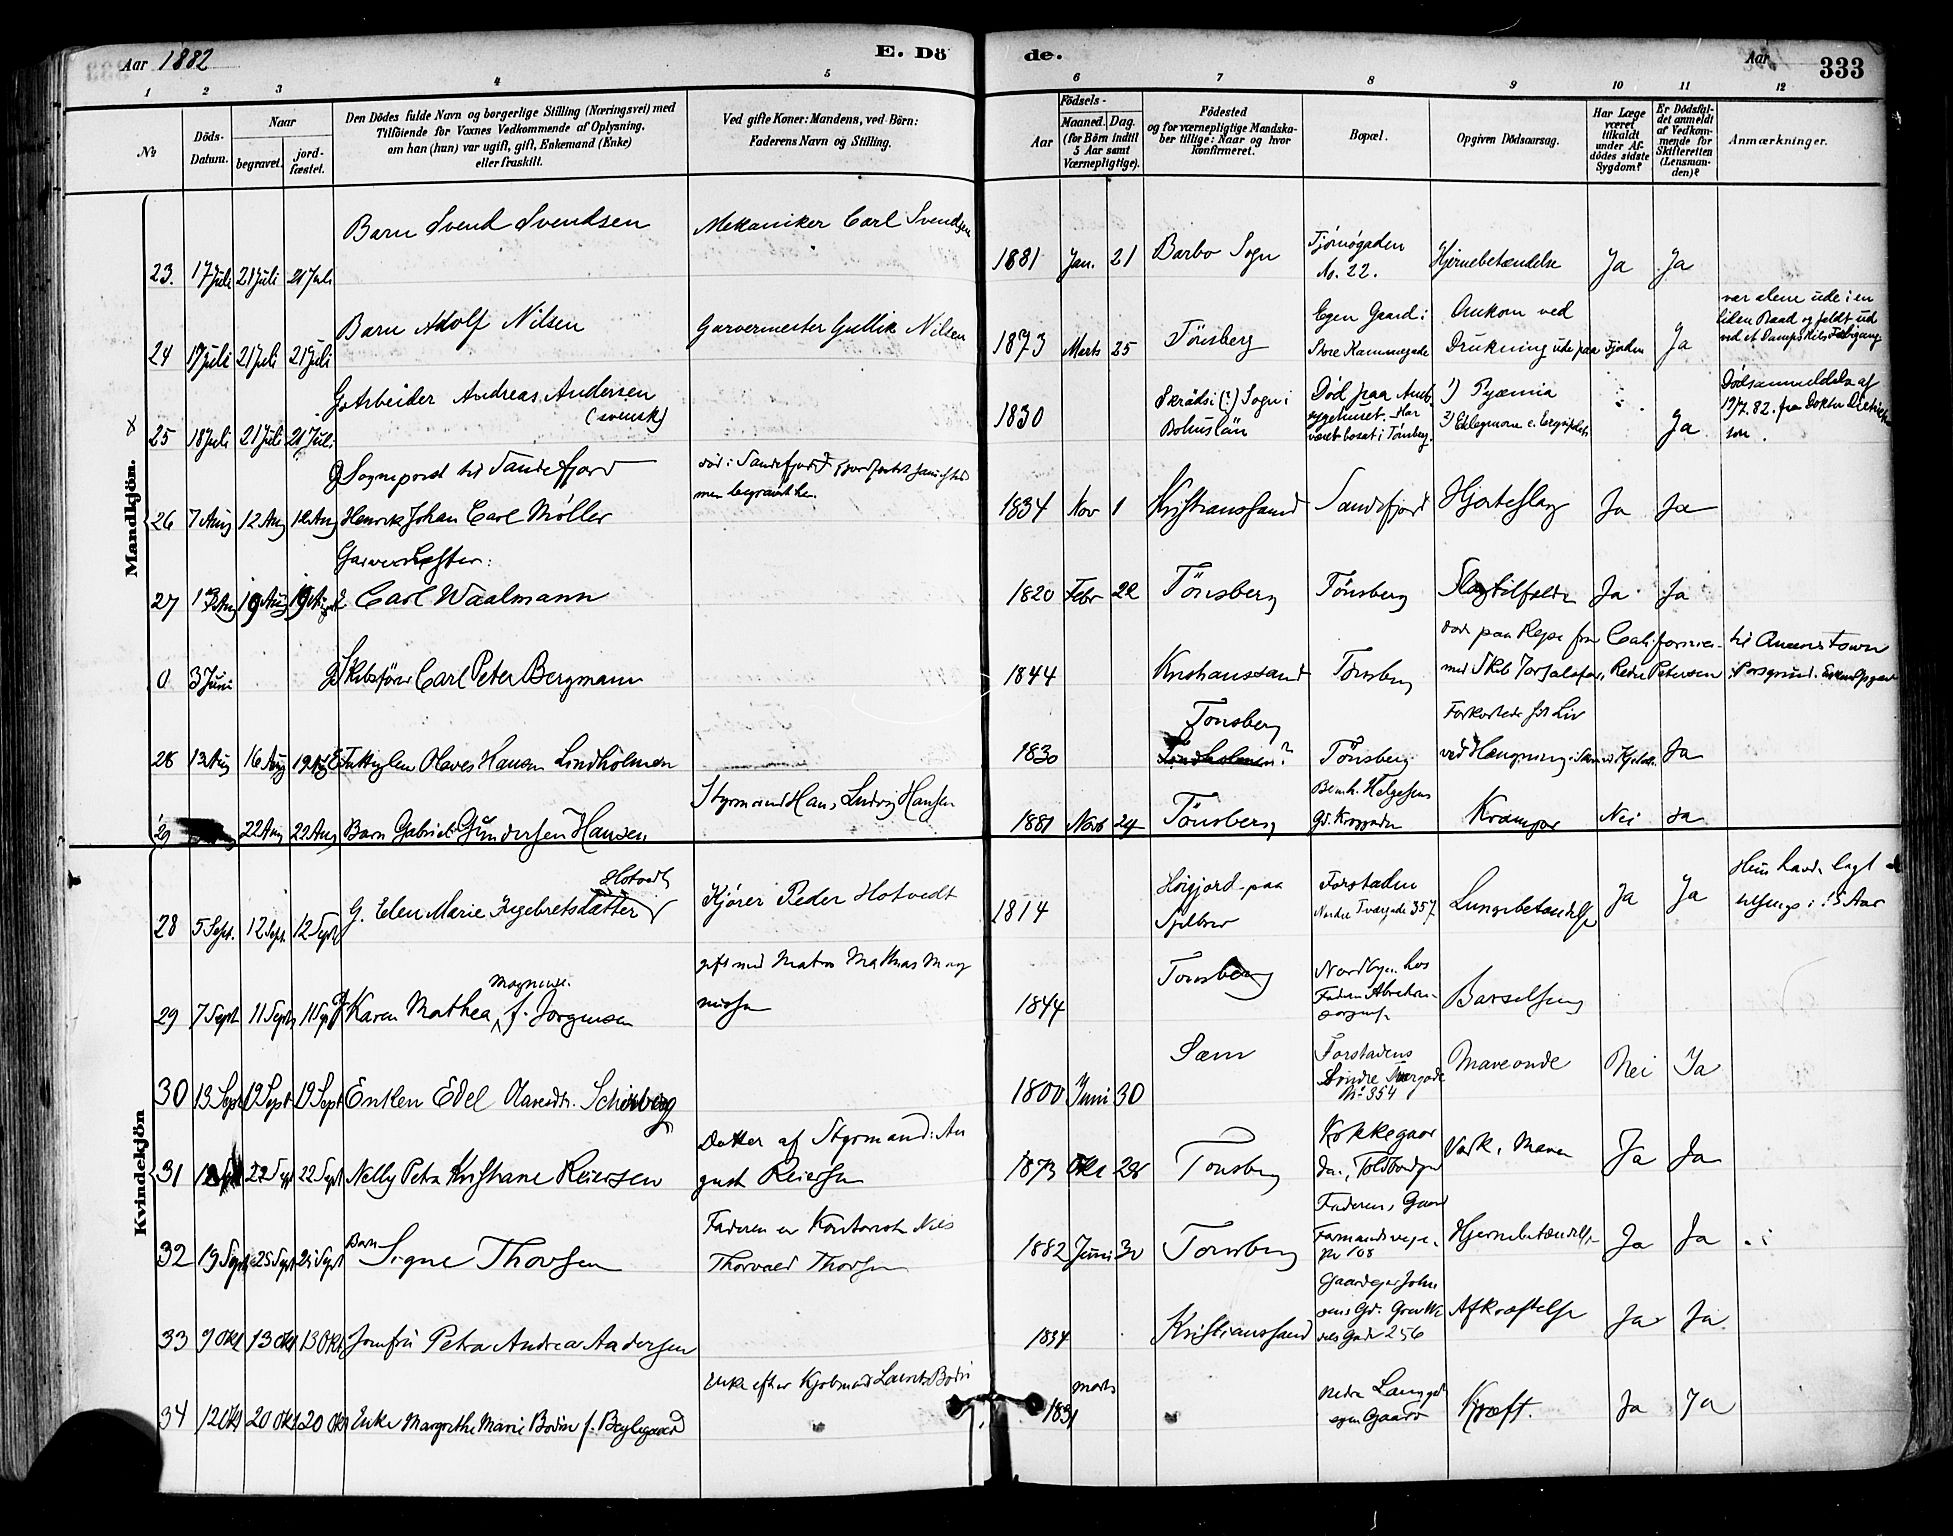 Aar 1882
E. Dö
de.
Aar
333
1 2 3 4 5 6 7 8 9 10 11 12
No
Döds-Datum.
Naar
begravet.
jord-fæstet.
Den Dödes fulde Navn og borgerlige Stilling (Næringsvei) med
Tilföiende for Voxnes Vedkommende af Oplysning,
om han (hun) var ugift, gift, Enkemand (Enke)
eller fraskilt.
Ved gifte Koner: Mandens, ved Börn:
Faderens Navn og Stilling.
Födsels-
Aar
Maaned. Dag.
(for Börn indtil
5 Aar samt
Værnepligtige).
Födested
og for værnepligtige Mandska-
ber tillige: Naar og hvor
konfirmeret.
Bopæl.
Opgiven Dödsaarsag.
Har Læge
været
tilkaldt
under Af-
dödes sidste
Sygdom?
Er Dödsfal-
det anmeldt
af Vedkom-
mende for
Skifteretten
(Lensman-
den)?
Anmærkninger.
Mandkjön.
23. 17 Juli 21 Juli 21 Juli Barn Svend Svendsen Mekaniker Carl Svendsen 1881 Jan. 21 Barbo Sogn Tjømøgaden No. 22. Hjernebetændelse Ja Ja
24 17 Juli 21 Juli 21 Juli Barn Adolf Nilsen Garvermester Gullik Nilsen 1873 Marts 25 Tönsberg Egen Gaard i Store Kammegade Omkom ved Drukning ude paa Fjorden Ja var alene ude i en liden Baad og faldt ud ved et Dampskibs Forbigang
x 25 18 Juli 21 Juli 21 Jul. G. Arbeider Andreas Andersen (svensk) 1830 Skrådsi (?) Sogn i Bohuslän Død paa Amtssygehuset. Har været bosat i Tønsberg. 1) Pyæmia Ja Dødsanmeldelse af 19/7. 82. fra Doktor
26 7 Aug 12 Aug 12 Aug G Sogneprest til Sandefjord Henrik Johan Carl Møller død i Sandefjord men begravet her. 1834 Nov 1 Kristianssand Sandefjord Hjerteslag Ja Ja
27 13 Aug 19 Aug 19 Aug Garvermester: Carl Waalmann 1820 Febr 22 Tönsberg Tönsberg Slagtilfælde Ja Ja
0 3 Juni G Skibsfører Carl Peter Bergmann 1844 Kristianssand Tønsberg død paa Rejse fra Californien til Queenstown med Skib Jorsalafar, Reder Petersen i Porsgrund.
28 13 Aug 16 Aug 19 Aug Fattiglem Olaves Hansen Lindholmen 1830 Tønsberg Lindholmen? Tönsberg Forkortede sit Liv ved Hængning Ja
29 22 Aug 22 Aug Barn Gabriel Gundersen Hansen Styrmand Hans Ludvig Hansen 1881 Novb 24 Tönsberg Bernh. Helgesens Gd. Krampe Nei Ja
Kvindekjön
28 5 Sept. 12 Sept. 12 Sept G. Elen Marie Ingebretsdatter Hotvedt Kjører Peder Hotvedt 1814 Forstaden Nordre Tværgade 357. Lungebetændelse Ja Ja Hun havde lagt tilsengs i 15 Aar
29 7 Sept 11 Sept 11 Sept G Karen Mathea Magnusen f. Jørgensen gift med Matros Mathias Magnussen 1844 Tønsberg Nordbyen hos Faderen Barselseng
30 13 Sept 19 Sept 19 Sept Enken Edel Olavesdtr. Schiøberg 1800 Juni 30 Sæm Forstadens Søndre Tvergade No 354 Maveonde Nei Ja
31 22 Sept 22 Sept Nelly Petra Kristiane Reiersen Datter af Styrmand: August Reiersen 1873 Okt 28 Tønsberg Ja Ja
32 19 Sept 25 Sept 25 Sept Barn Signe Thorsen Faderen er Kontorist Nils Thorvald Thorsen 1882 Juni 30 Tønsberg Faderens Gaard Farmandsveien No 108 Hjernebetændelse Ja Ja
33 9 Okt 13 Okt 13 Okt Jomfru Petra Andrea Andersen 1834 Kristianssand Afkræftelse Ja Ja
34 12 Okt 20 Okt 20 Okt Enke Margrethe Marie Bodin f. Bøylegaard Enke efter Kjøbmand Laurits Bodin 1831 Marts Nedre Langgd egen Gaard Kræft. Ja Ja